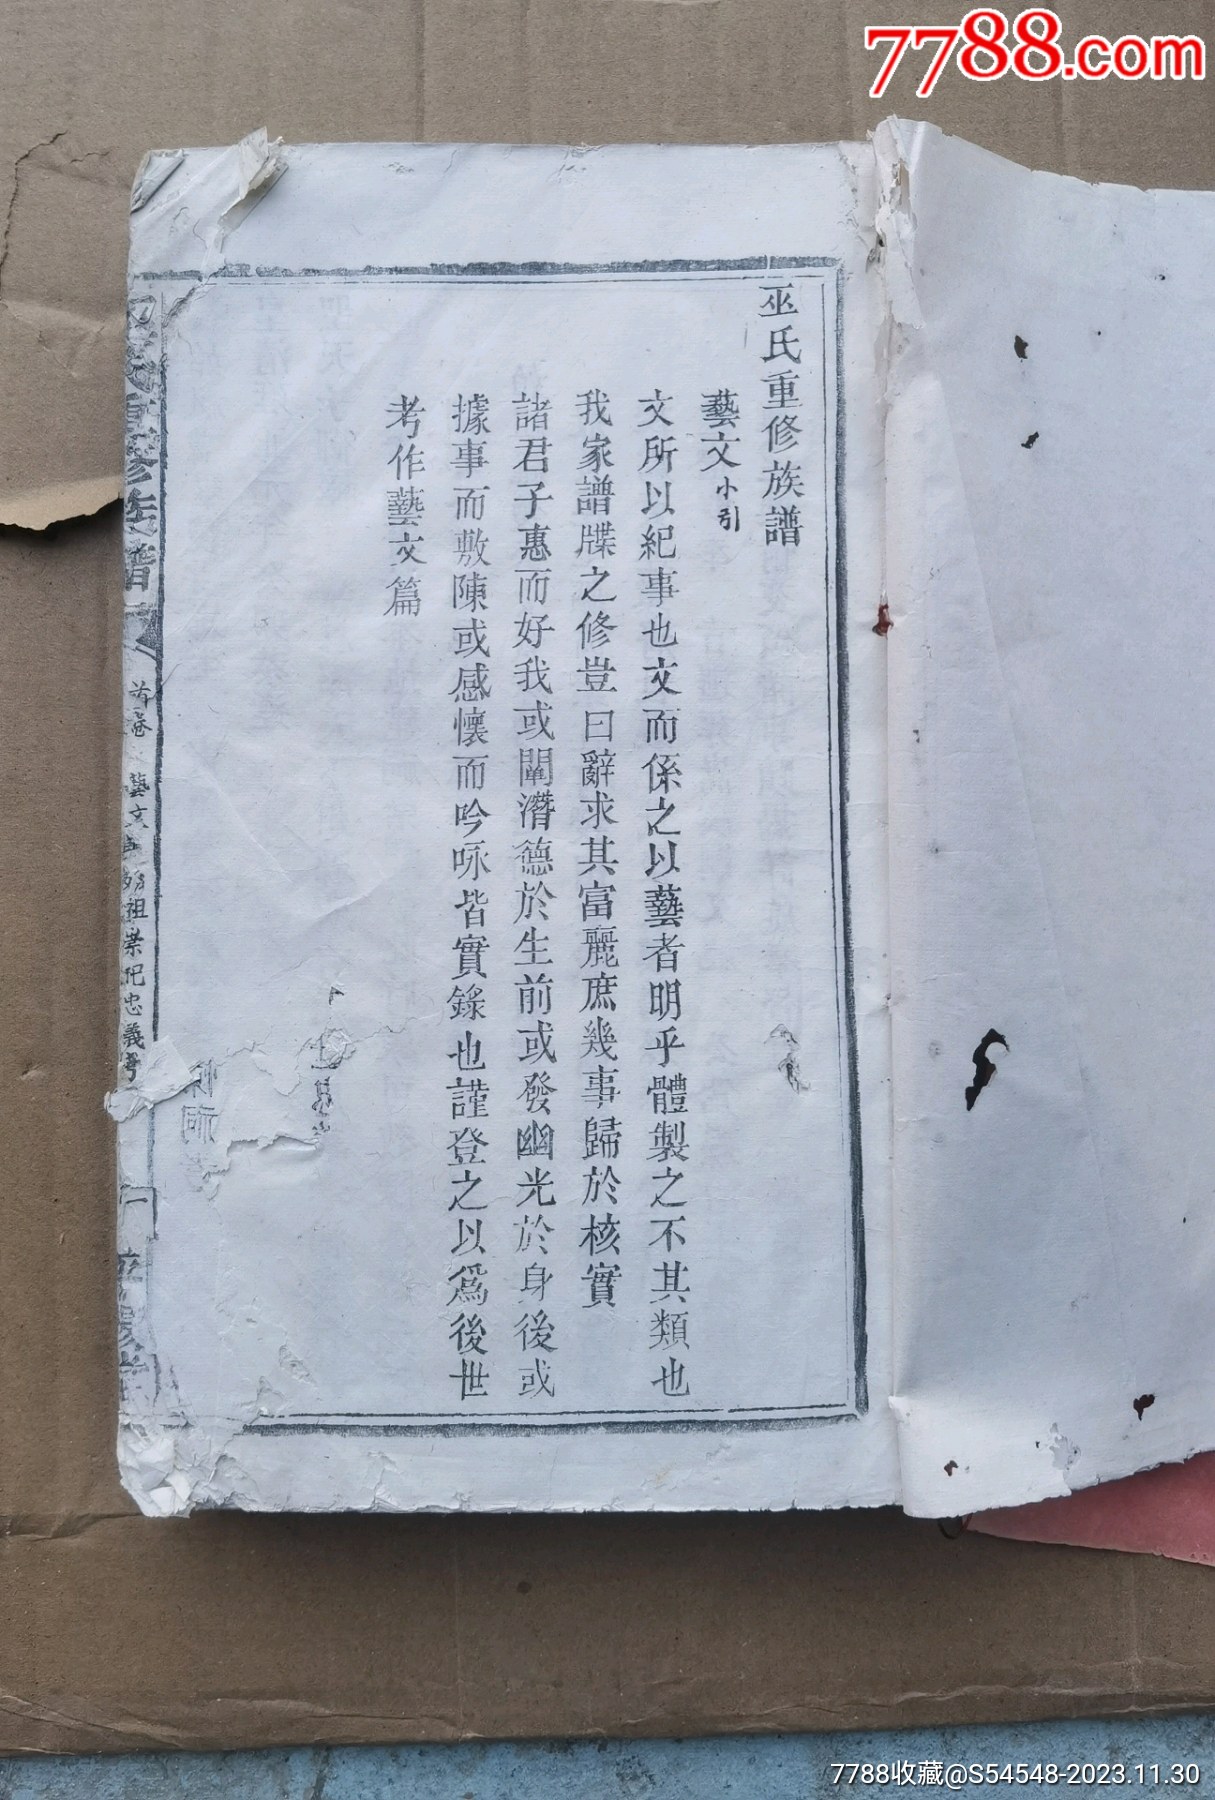 7788.com
巫氏重修族譜
藝文小引
文所以紀事也文而係之以藝者明乎體製之不其類也
我家譜牒之修豈曰辭求其富麗庶幾事歸於核實
諸君子惠而好我或闡潛德於生前或發幽光於身後或
據事而敷陳或感懷而吟咏皆實錄也謹登之以為後世
考作藝文篇
氏重修族譜
首卷
藝文
祖崇祀忠義
一
7788收藏@S54548-2023.11.30